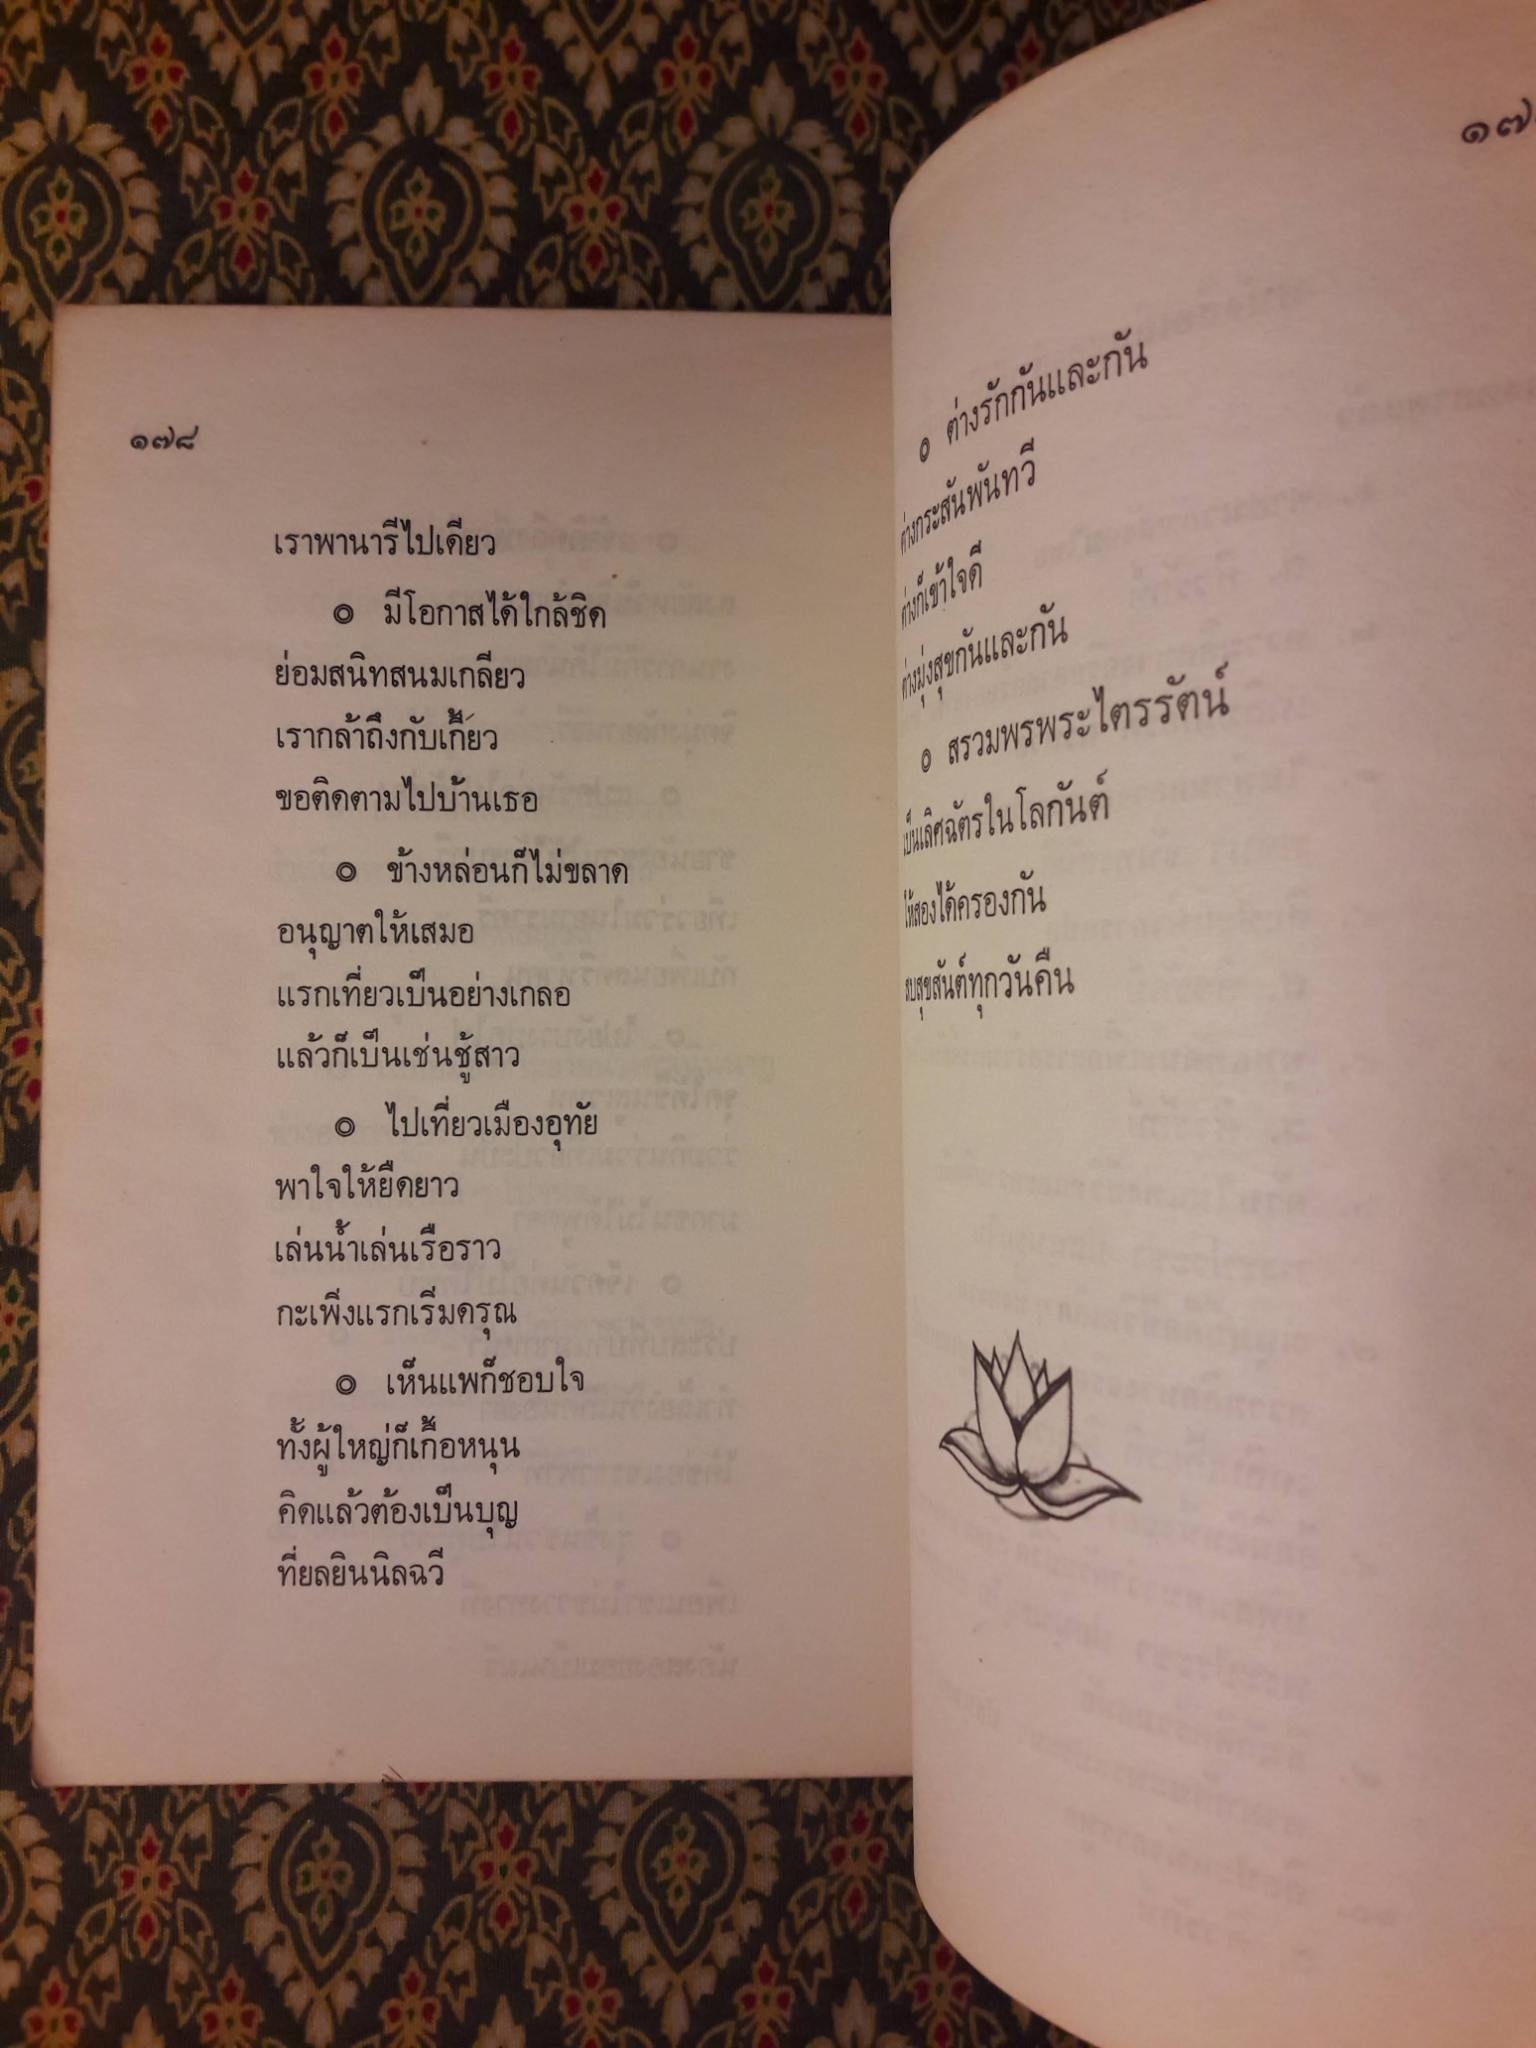 ๑๗๘
เราพานารีไปเดียว
๏ มีโอกาสได้ใกล้ชิด
ย่อมสนิทสนมเกลียว
เรากล้าถึงกับเกี้ยว
ขอติดตามไปบ้านเธอ
๏ ข้างหล่อนก็ไม่ขลาด
อนุญาตให้เสมอ
แรกเที่ยวเป็นอย่างเกลอ
แล้วก็เป็นเช่นชู้สาว
๏ ไปเที่ยวเมืองอุทัย
พาใจให้ยืดยาว
เล่นน้ำเล่นเรือราว
กะเพิ่งแรกเริ่มดรุณ
๏ เห็นแพก็ชอบใจ
ทั้งผู้ใหญ่ก็เกื้อหนุน
คิดแล้วต้องเป็นบุญ
ที่ยลยินนิลฉวี
๑๗
๏ ต่างรักกันและกัน
ต่างกระสันพันทวี
ต่างก็เข้าใจดี
ต่างมุ่งสุขกันและกัน
๏ สรวมพรพระไตรรัตน์
เป็นเลิศฉัตรในโลกันต์
ให้สองได้ครองกัน
สบสุขสันต์ทุกวันคืน